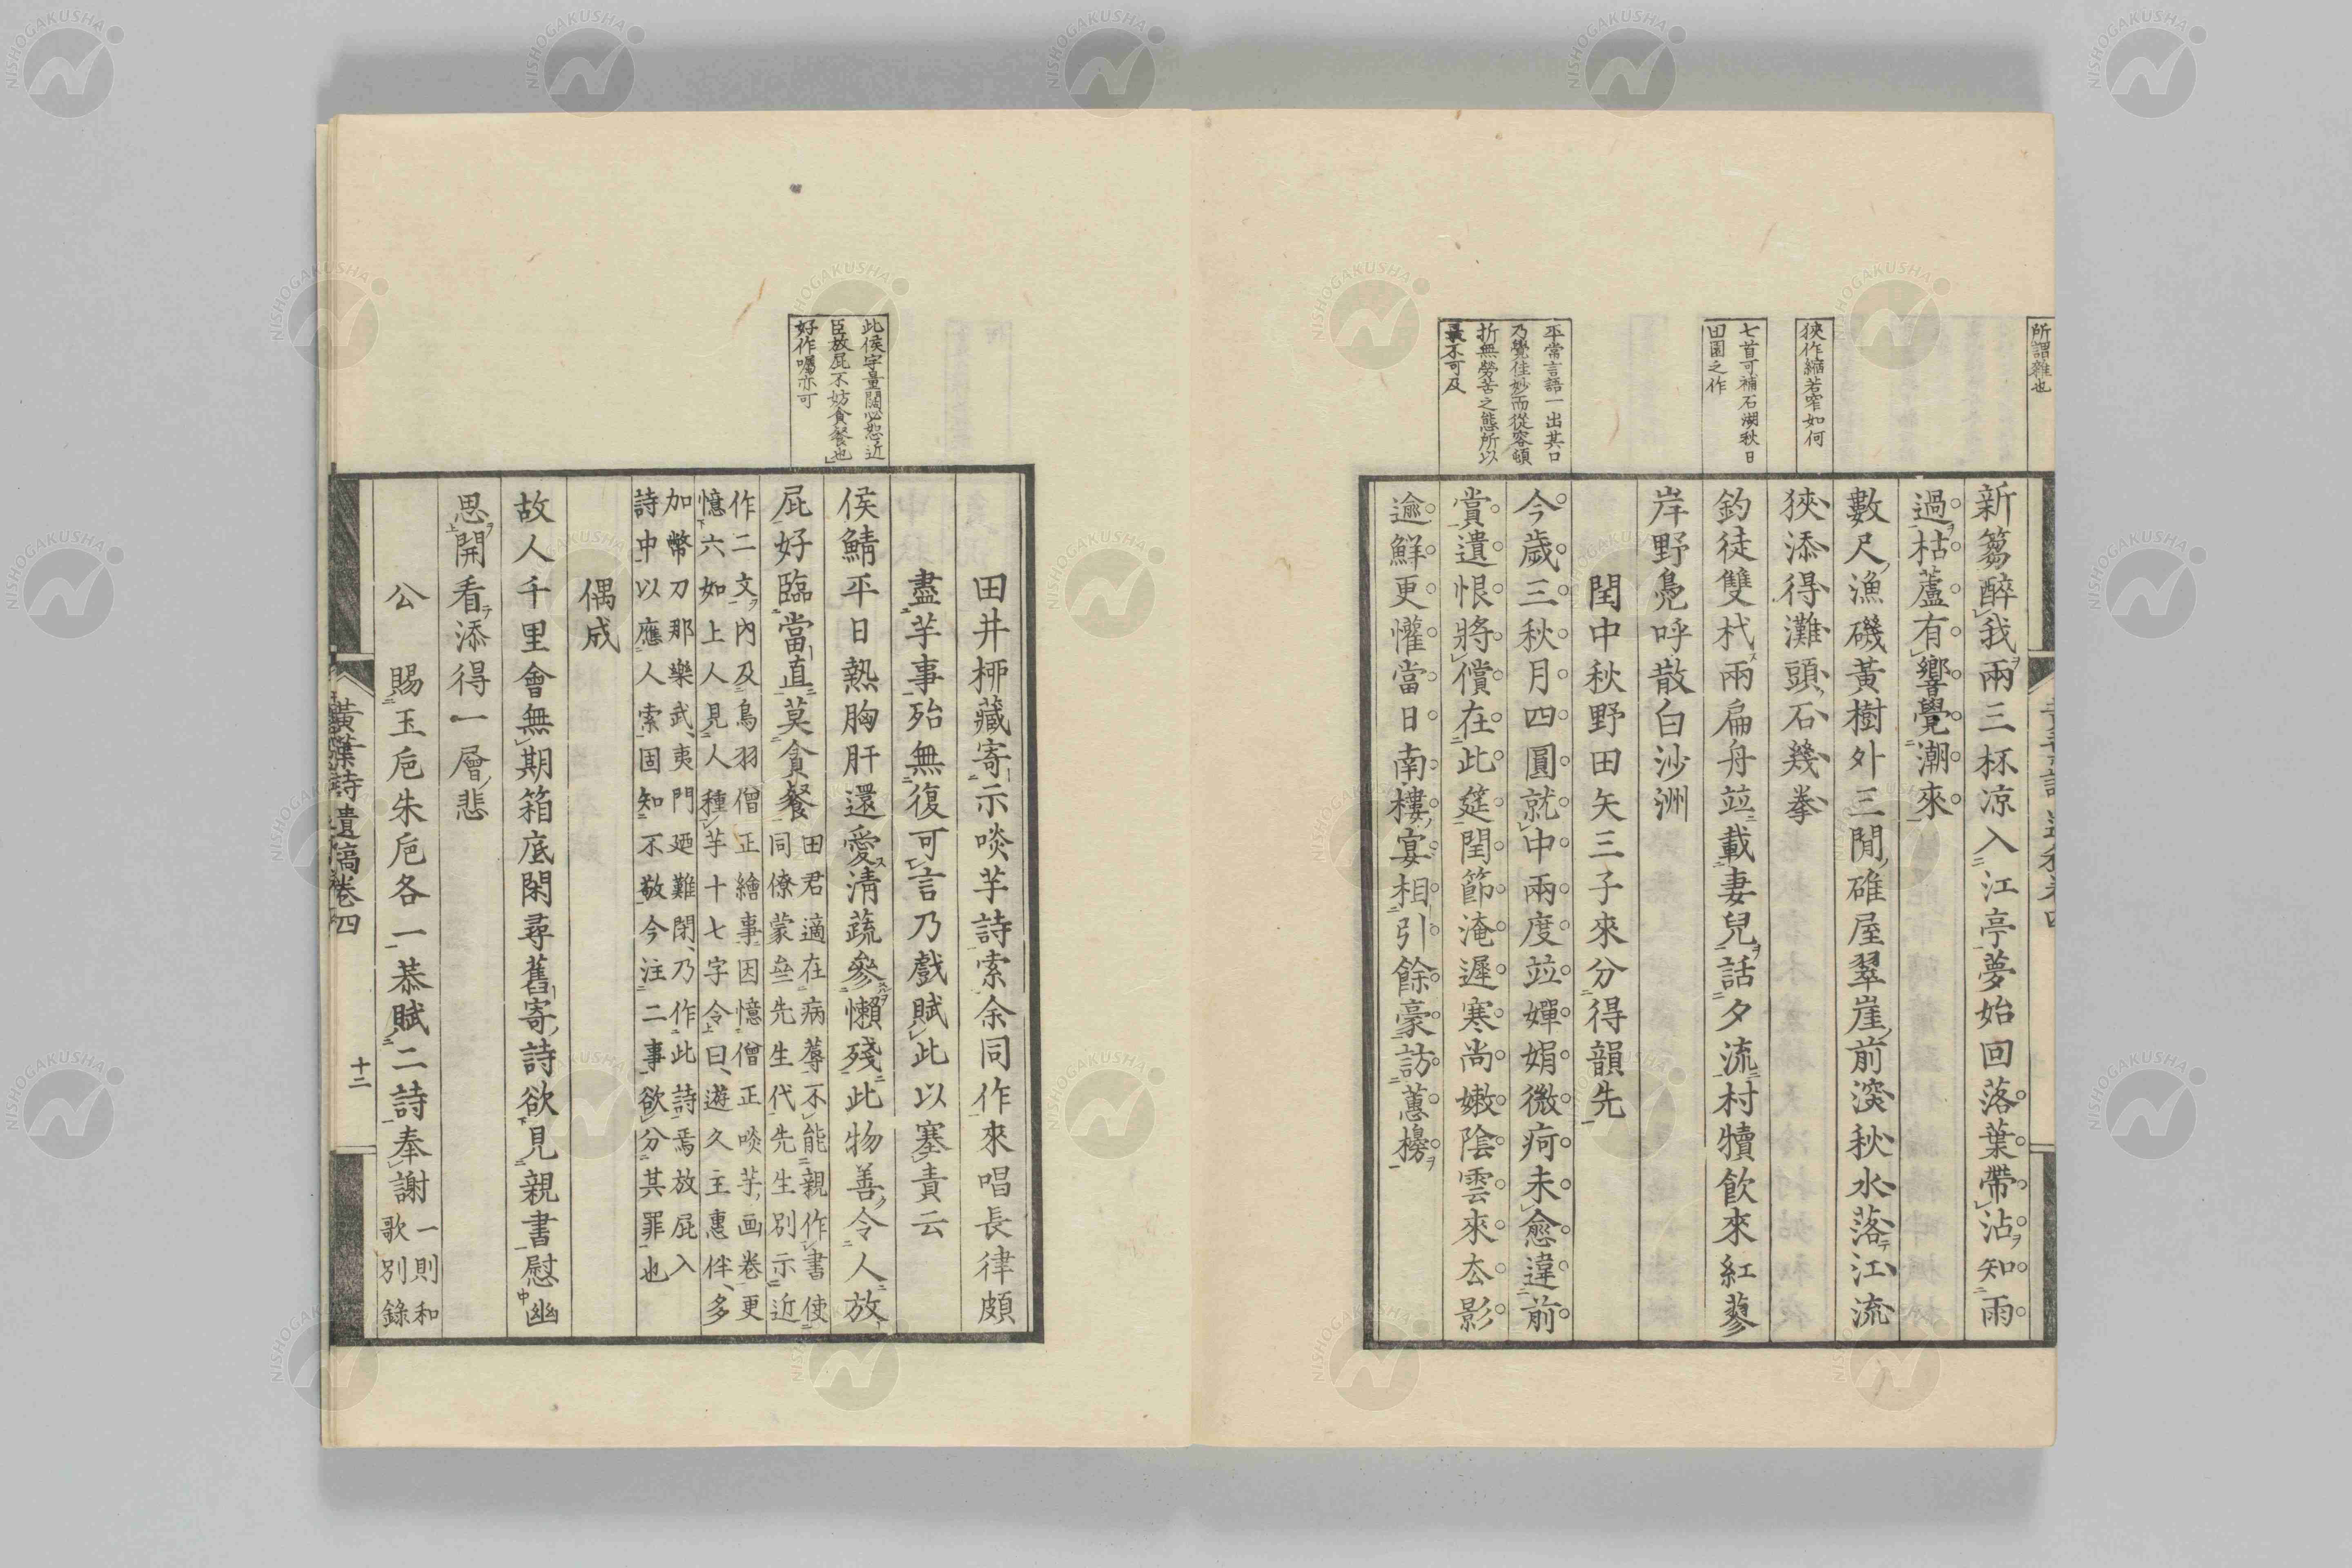 所謂雜也
狹作縮若窄如何
七首可補石湖秋日
田園之作
平當言語一出其口
乃覺佳妙而從容頓
折無勞苦之態所以
最不可及
新篘醉我兩三杯凉入江亭夢始回落葉帶沾知雨
過枯蘆有響覺潮來
數尺漁磯黃樹外三閒碓屋翠崖前深秋水落江流
狹添得灘頭石幾拳
釣徒雙杙兩扁舟竝載妻兒話夕流村犢飮來紅蓼
岸野鳧呼散白沙洲
閏中秋野田矢三子來分得韻先
今歲三秋月四圓就中兩度竝嬋娟微痾未愈違前
賞遺恨將償在此筵閏節淹遲寒尚嫩陰雲來去影
逾鮮更懽當日南樓宴相引餘豪訪蕙櫋
此侯字量闊必恕近
臣放屁不妨貪餐也
好作囑亦可
田井栁藏寄示啖芋詩索余同作來唱長律頗
盡芋事殆無復可言乃戲賦此以塞責云
侯鯖平日熟胸肝還愛淸蔬參懶殘此物善令人放
屁好臨當直莫貪餐
田君適在病蓐不能親作書使
同僚蒙壘先生代先生別示近
作二文內及鳥羽僧正繪事因憶僧正啖芋画卷更
憶六如上人見人種芋十七字令曰遊久主惠伴多
加幣刀那樂武夷門廼難閉乃作此詩焉放屁入
詩中以應人索固知不敬今注二事欲分其罪也
偶成
故人千里會無期箱底閑尋舊寄詩欲見親書慰幽
思開看添得一層悲
公　賜玉巵朱巵各一恭賦二詩奉謝
一則和
歌別錄
黃葉詩遺稿卷四
十二